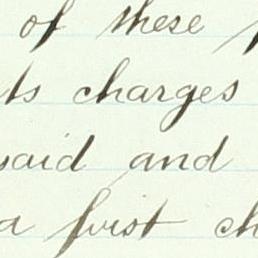 of these
charges
said and
a first